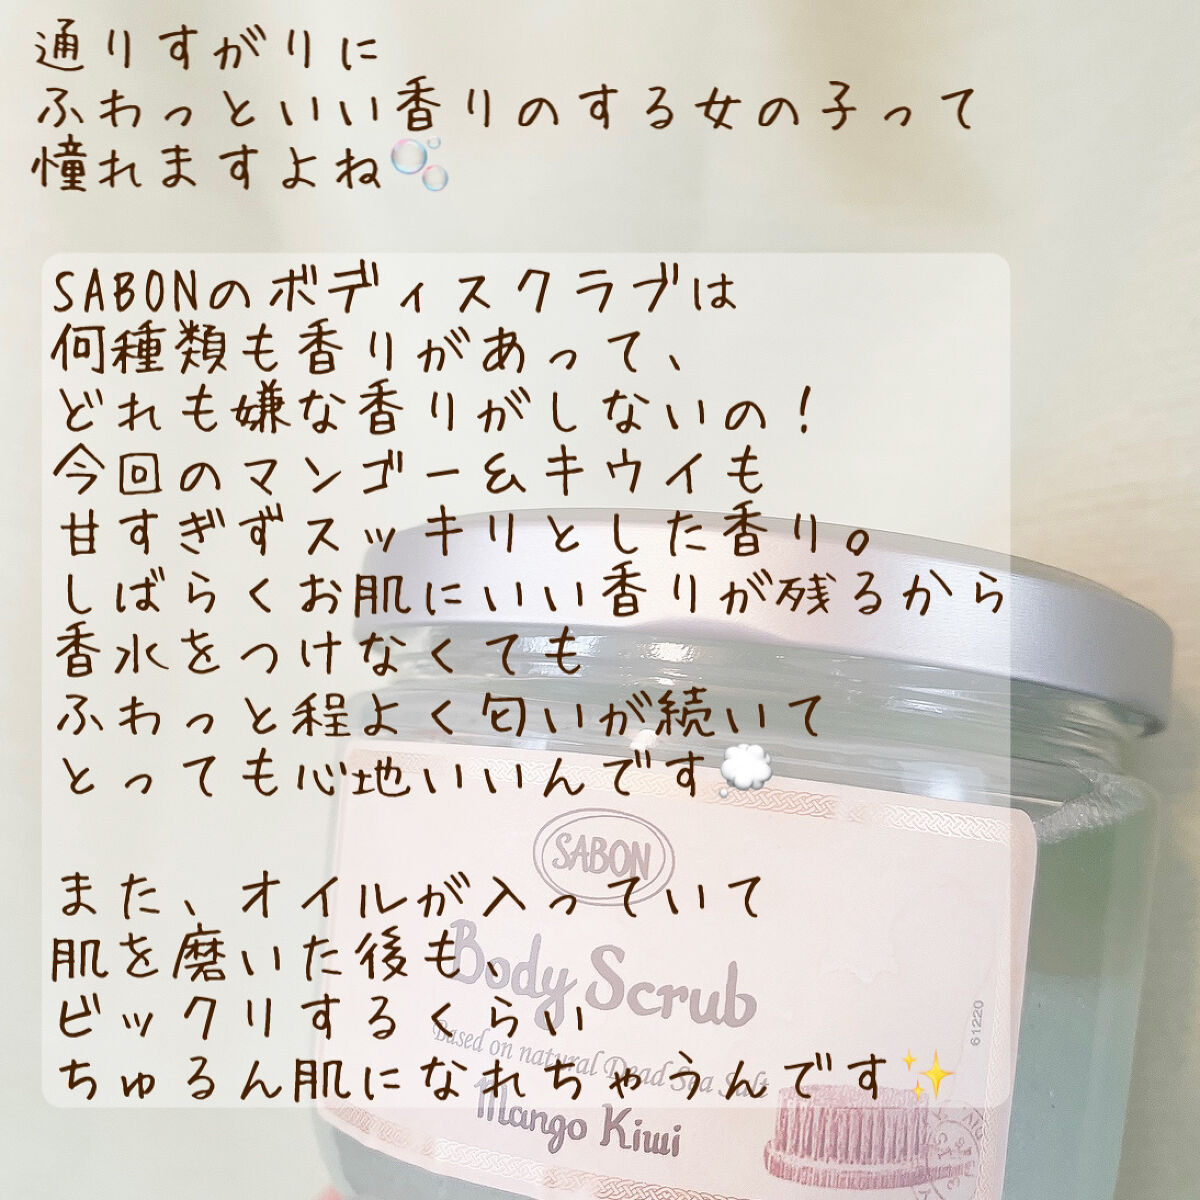 通りすがりに
ふわっといい香りのする女の子って
憧れますよね🫧
SABONのボディスクラブは
何種類も香りがあって、
どれも嫌な香りがしないの！
今回のマンゴー&キウイも
甘すぎずスッキリとした香り。
しばらくお肌にいい香りが残るから
香水をつけなくても
ふわっと程よく匂いが続いて
とっても心地いいんです💭
また、オイルが入っていて
肌を磨いた後も、
ビックリするくらい
ちゅるん肌になれちゃうんです✨
SABON
Body Scrub
Based on natural Dead Sea Salt
Mango Kiwi
61220